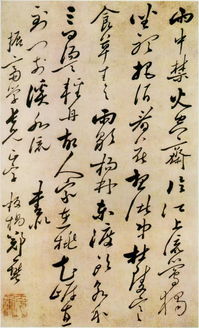 雨中禁火空齋冷江上流鶯獨
坐聽把酒看花想諸弟杜陵寒
食草青青雨歇楊林東渡頭永和
三日蕩輕舟故人家在桃花岸直
到門前溪水流
板橋鄭燮